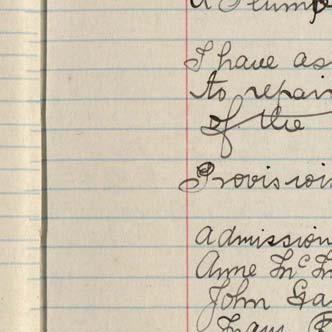 A Plump
I have as
to repair
of the
Provision
admission
Anne Mc
John